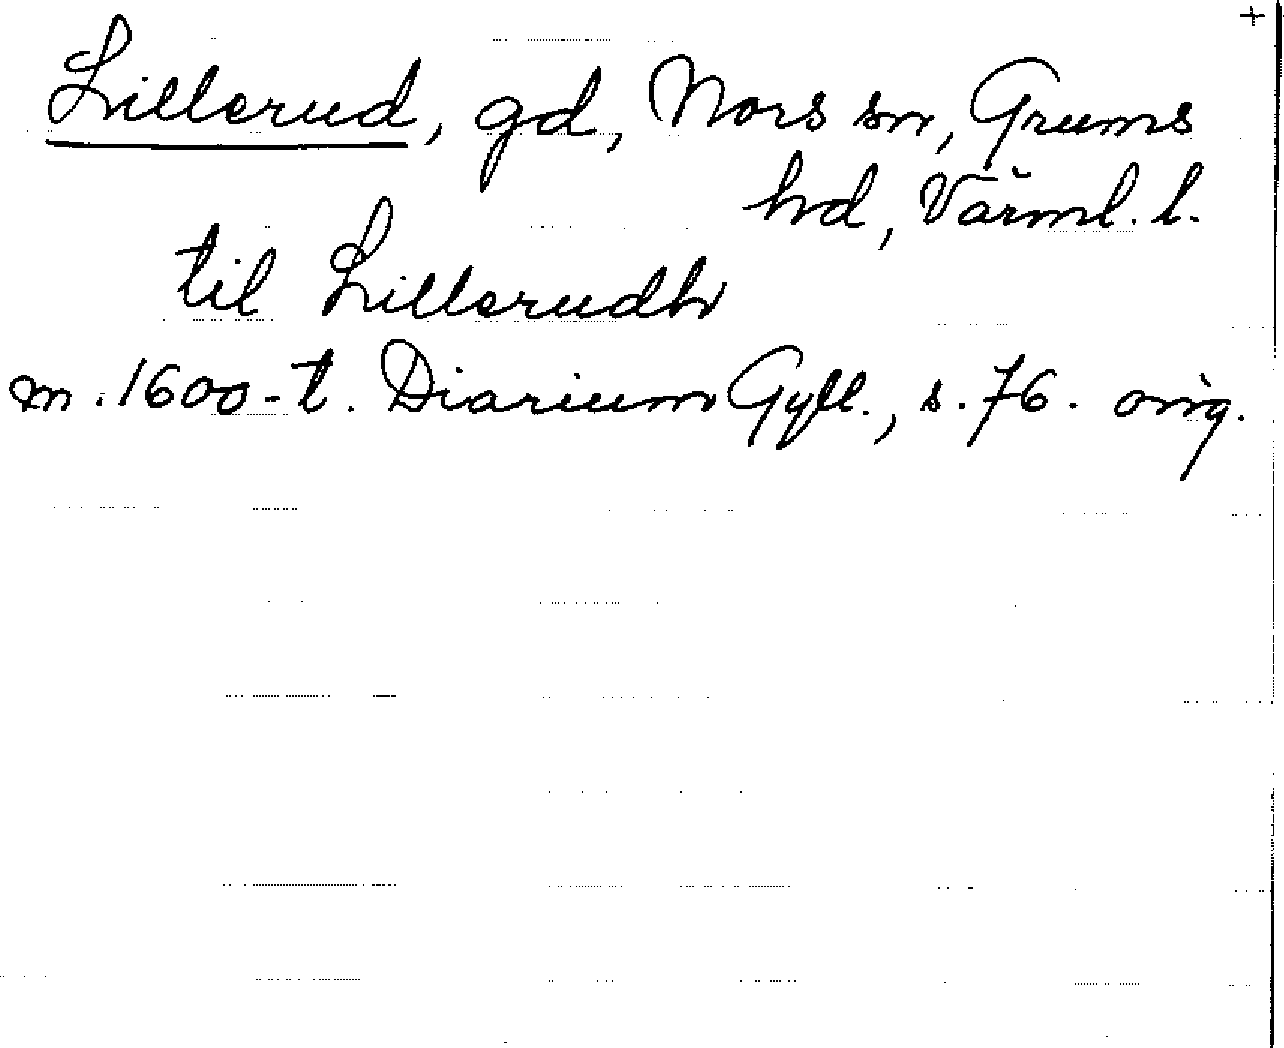 +
Lillerud, gd, Nors sn, Grums
hd, Värml. l.
til Lillerudh
m. 1600-t. Diarium Gyll., s. 76. orig.